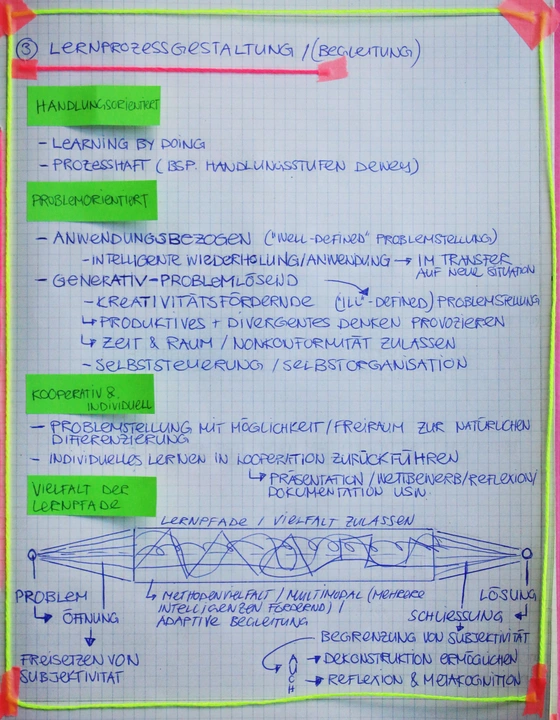 ③ LERNPROZESSGESTALTUNG / (BEGLEITUNG)
HANDLUNGSORIENTIERT
- LEARNING BY DOING
- PROZESSHAFT (BSP. HANDLUNGSSTUFEN DEWEY)
PROBLEMORIENTIERT
- ANWENDUNGSBEZOGEN ("WELL-DEFINED" PROBLEMSTELLUNG)
- INTELLIGENTE WIEDERHOLUNG/ANWENDUNG → IM TRANSFER
AUF NEUE SITUATION
- GENERATIV-PROBLEMLÖSEND
- KREATIVITÄTSFÖRDERNDE ("ILL"-DEFINED) PROBLEMSTELLUNG
↳ PRODUKTIVES + DIVERGENTES DENKEN PROVOZIEREN
↳ ZEIT & RAUM / NONKONFORMITÄT ZULASSEN
- SELBSTSTEUERUNG / SELBSTORGANISATION
KOOPERATIV &
INDIVIDUELL
- PROBLEMSTELLUNG MIT MÖGLICHKEIT/FREIRAUM ZUR NATÜRLICHEN
DIFFERENZIERUNG
- INDIVIDUELLES LERNEN IN KOOPERATION ZURÜCKFÜHREN
↳ PRÄSENTATION / WETTBEWERB / REFLEXION /
DOKUMENTATION USW.
VIELFALT DER
LERNPFADE
LERNPFADE / VIELFALT ZULASSEN
PROBLEM
↳ ÖFFNUNG
FREISETZEN VON
SUBJEKTIVITÄT
↳ METHODENVIELFALT / MULTIMODAL (MEHRERE
INTELLIGENZEN FÖRDERND) /
ADAPTIVE BEGLEITUNG
LÖSUNG
SCHLIESSUNG
BEGRENZUNG VON SUBJEKTIVITÄT
→ DEKONSTRUKTION ERMÖGLICHEN
→ REFLEXION & METAKOGNITION